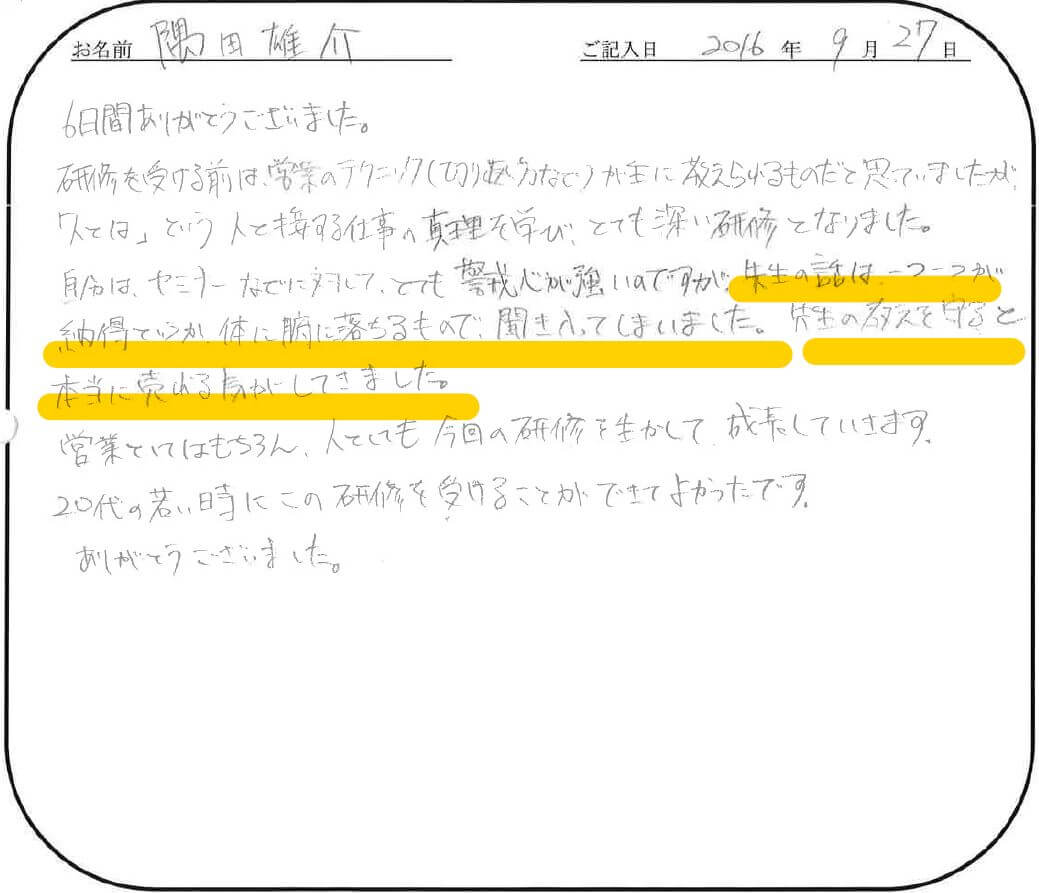 お名前 隅田雄介 ご記入日 2016年9月27日
6日間ありがとうございました。
研修を受ける前は、営業のテクニック(切り返し方など)が主に教えられるものだと思っていましたが、
「人とは」という人と接する仕事の真理を学び、とても深い研修となりました。
自分は、セミナーなどに対して、とても警戒心が強いのですが、先生の話は、一つ一つが
納得というか、体に腑に落ちるもので、聞き入ってしまいました。先生の教えを守ると
本当に売れる気がしてきました。
営業としてはもちろん、人としても今回の研修を生かして、成長していきます。
20代の若い時にこの研修を受けることができてよかったです。
ありがとうございました。